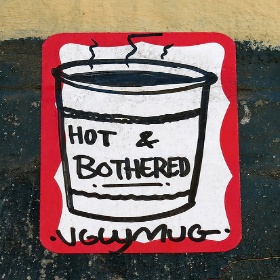 HOT &
BOTHERED
UGLYMUG